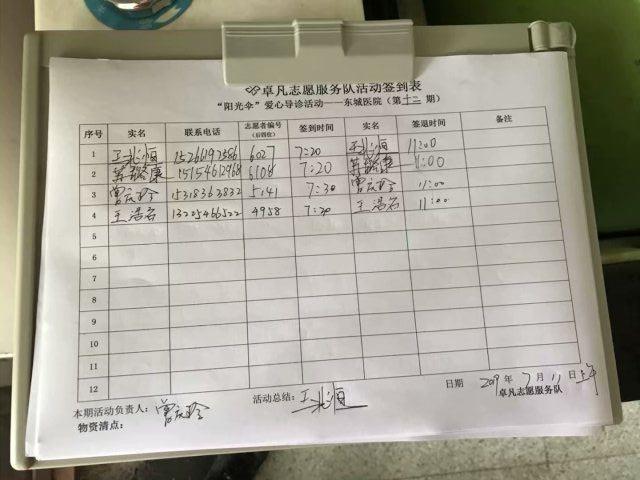 卓凡志愿服务队活动签到表
“阳光伞”爱心导诊活动——东城医院（第十二期）
序号 实名 联系电话 志愿者编号（后四位） 签到时间 实名 签退时间 备注
1 王兆恒 15266192586 6027 7:20 王兆恒 11:00
2 康 15154612968 6108 7:20 康 11:00
3 曾庆玲 15318363832 5141 7:30 曾庆玲 11:00
4 王浩名 13225466522 4958 7:20 王浩名 11:00
5
6
7
8
9
10
11
12
日期 2019年7月11日上午
本期活动负责人：曾庆玲 活动总结：王兆恒 卓凡志愿服务队
物资清点：